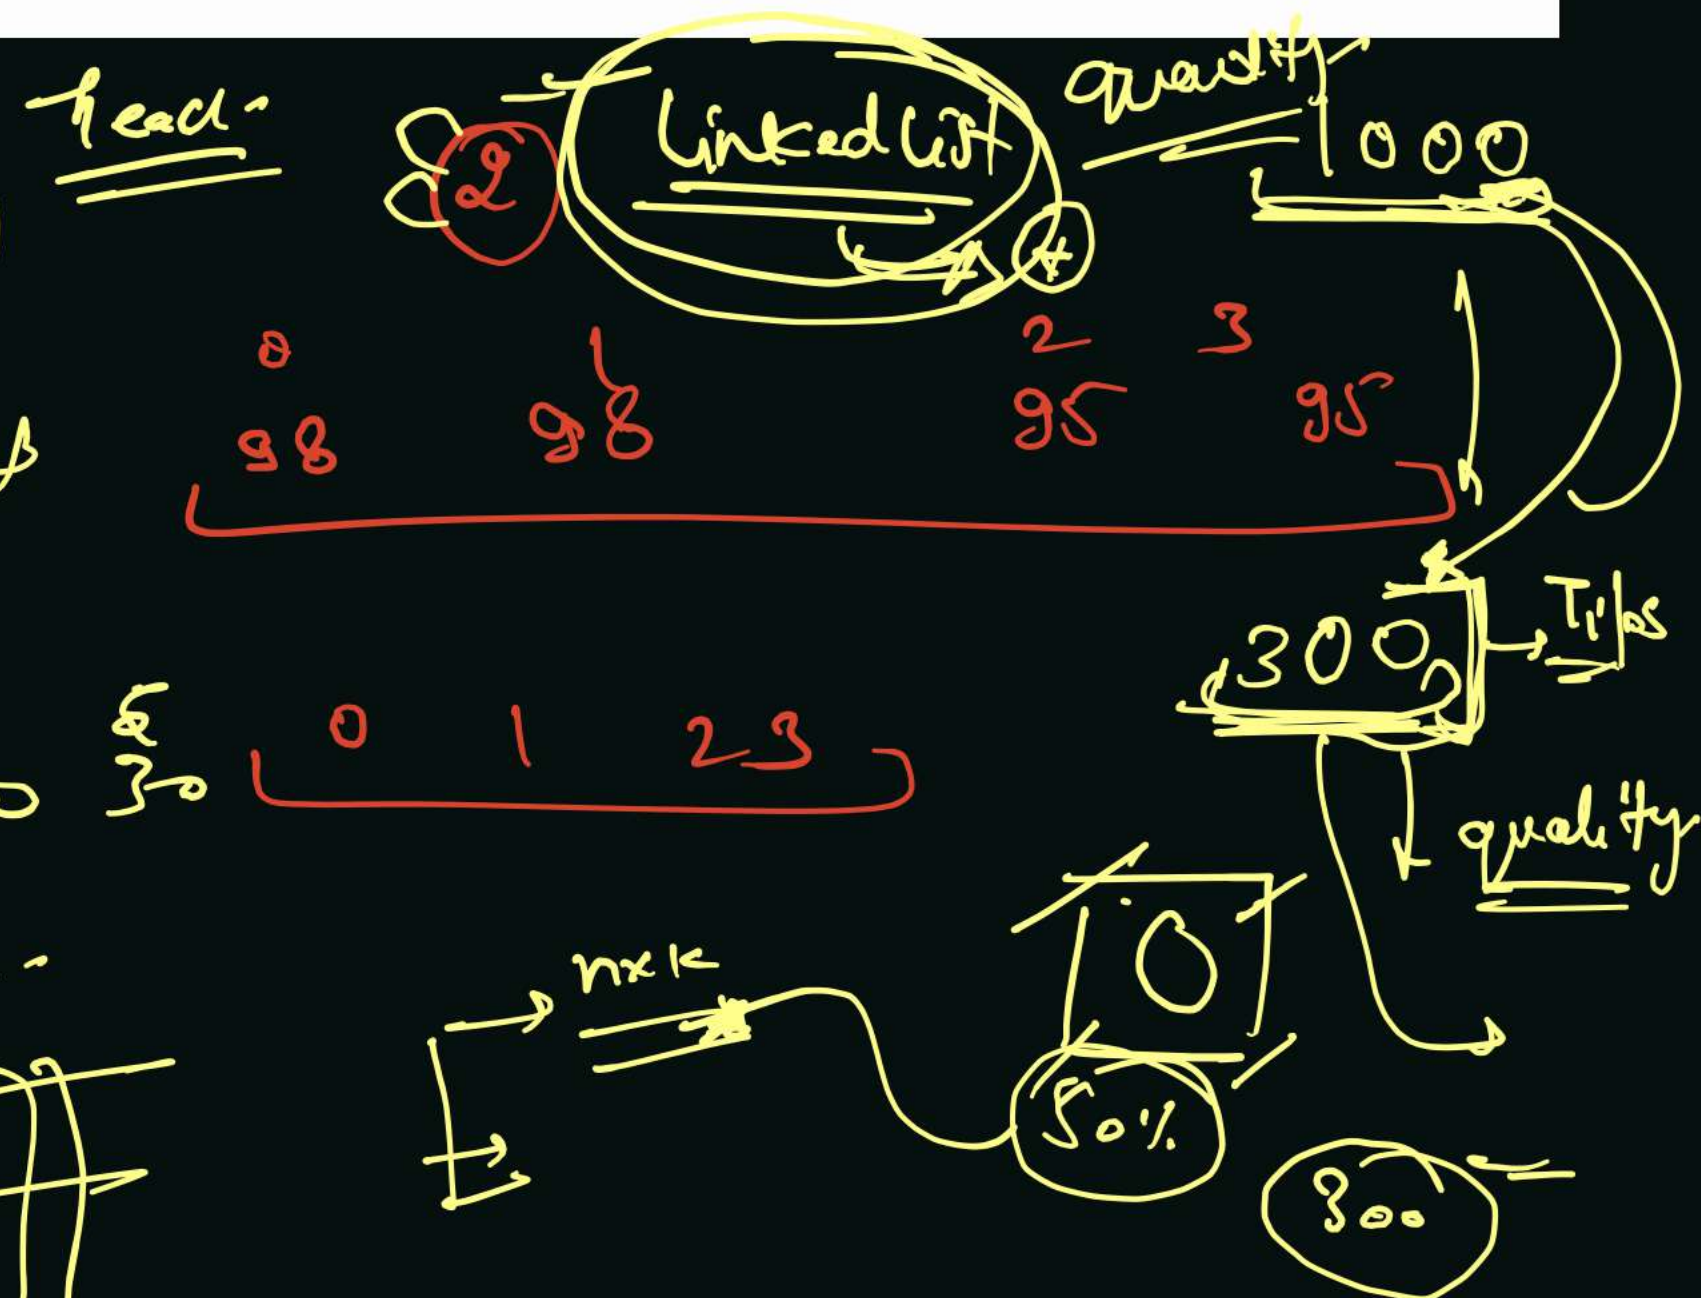 head-
2
Linked List
quantity
1000
0 1 2 3
98 98 95 95
300
0 1 2 3
30
quality
nxk
0
50%
300